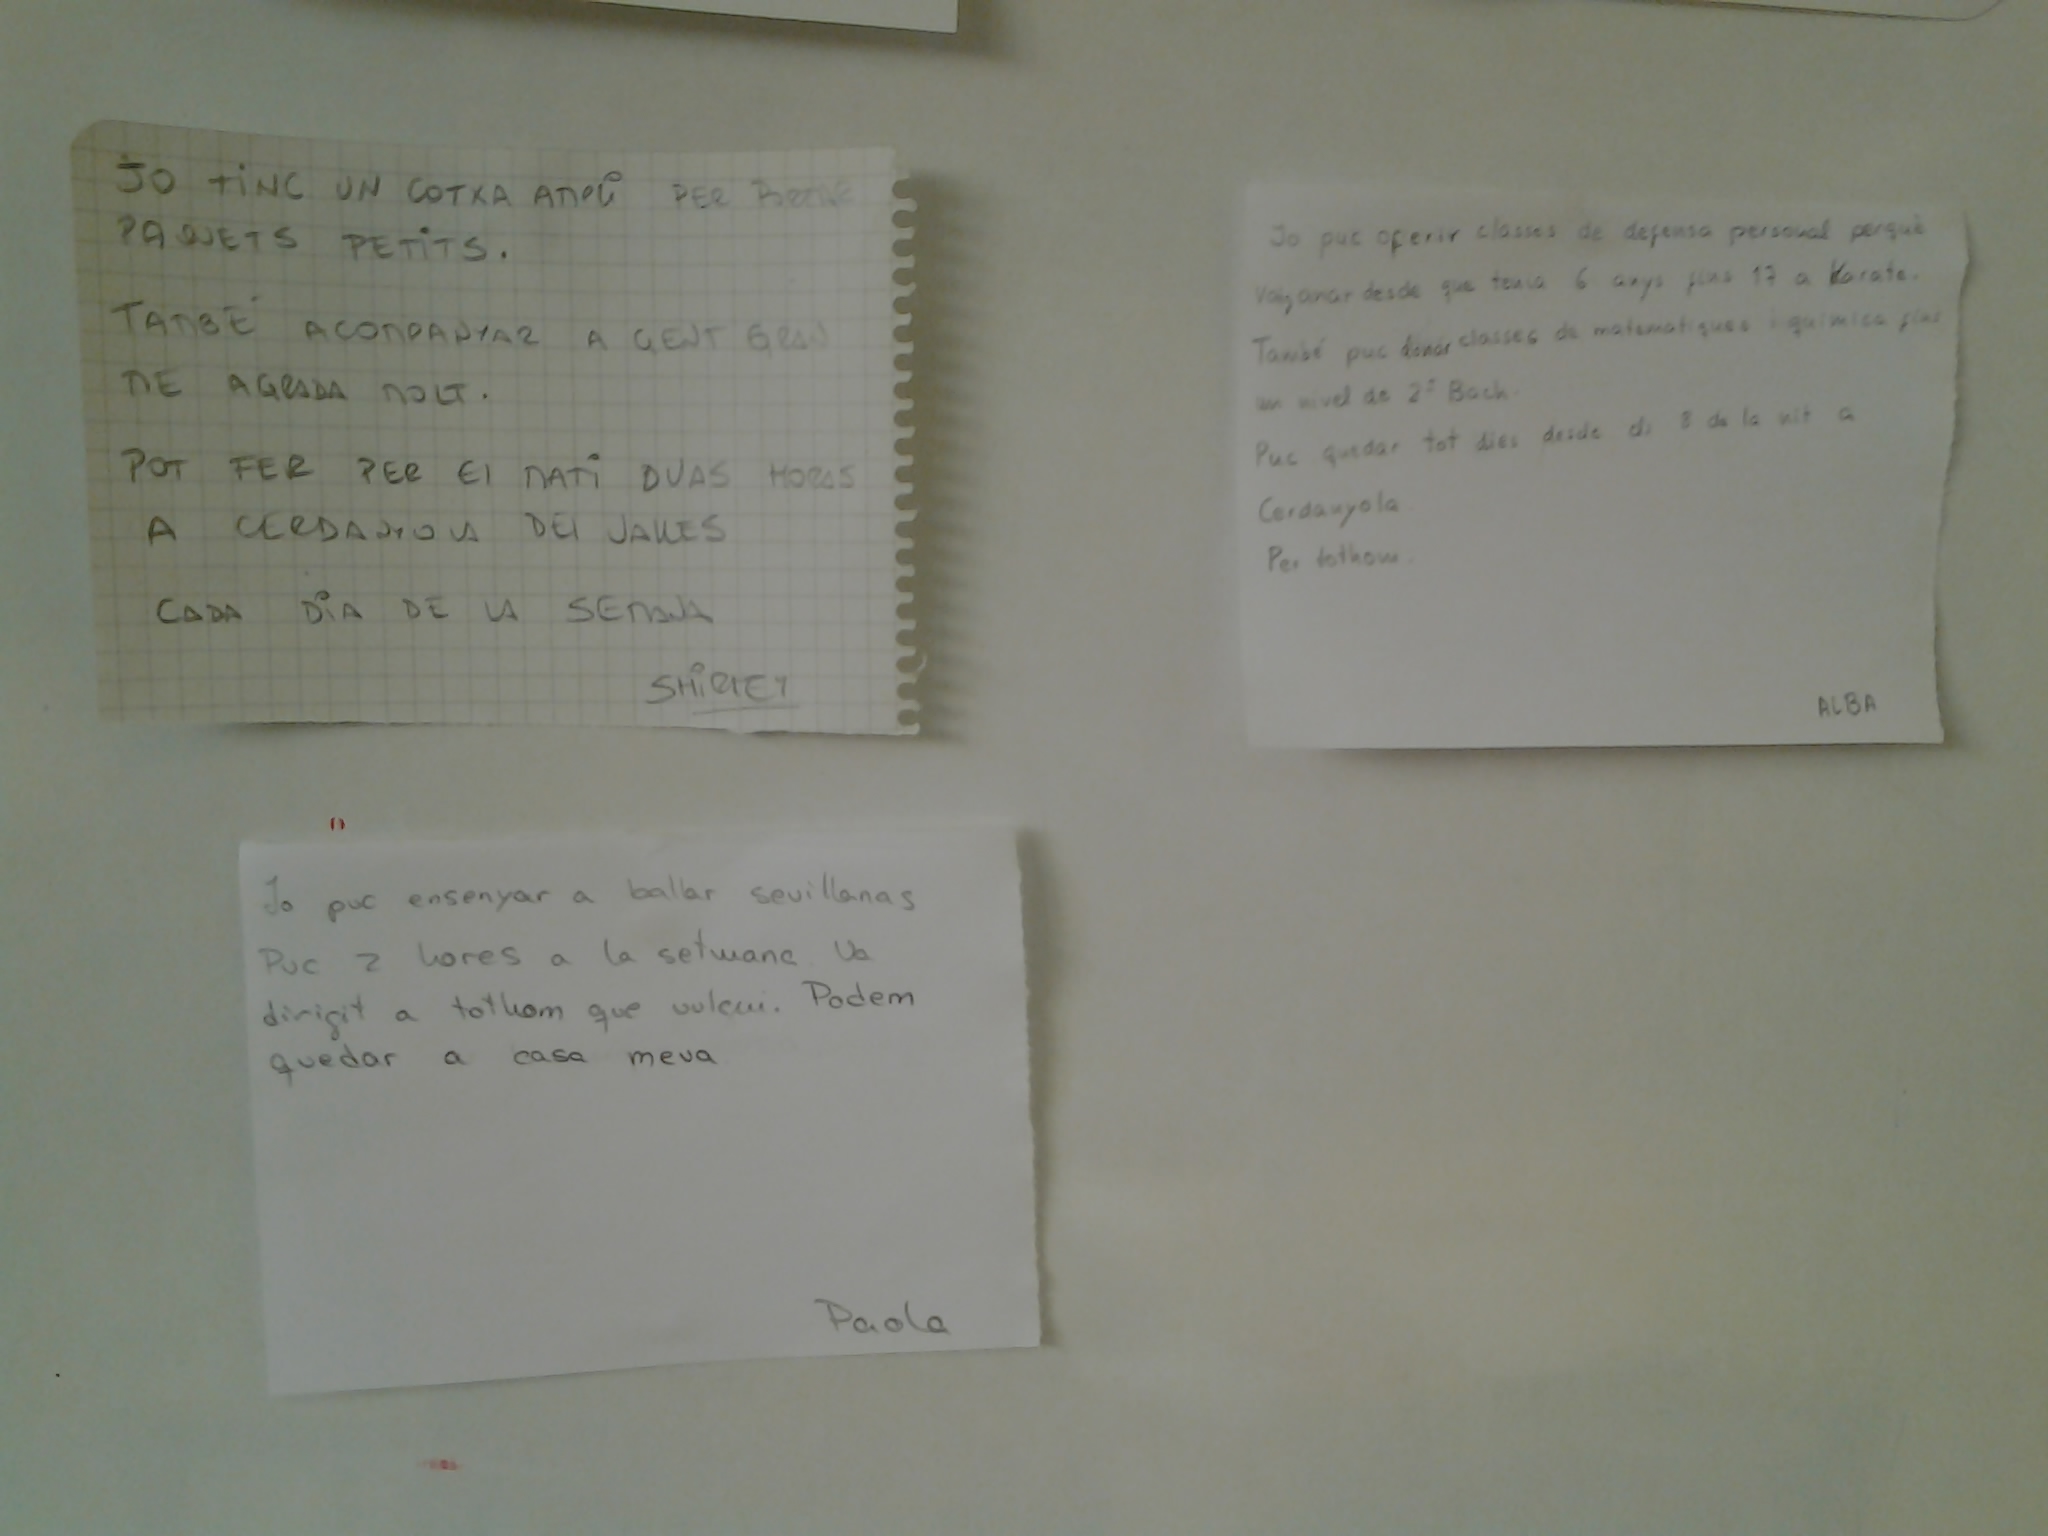 JO TINC UN COTXA AMPLI PER
PAQUETS PETITS.
TAMBÉ ACOMPANYAR A GENT GRAN
ME AGRADA MOLT.
POT FER PER El MATI DUAS HORAS
A CERDANYOLA DEl VALLES
CADA DIA DE LA SEMANA
SHIRLEY
Jo puc oferir classes de defensa personal perquè
vaig anar desde que tenia 6 anys fins 17 a Karate.
També puc donar classes de matematiques i quimica fins
un nivel de 2º Bach.
Puc quedar tot dies desde 8 de la nit a
Cerdanyola
Per tothom.
ALBA
Jo puc ensenyar a ballar sevillanas
Puc 2 hores a la setmana. Va
dirigit a tothom que vulgui. Podem
quedar a casa meva
Paola